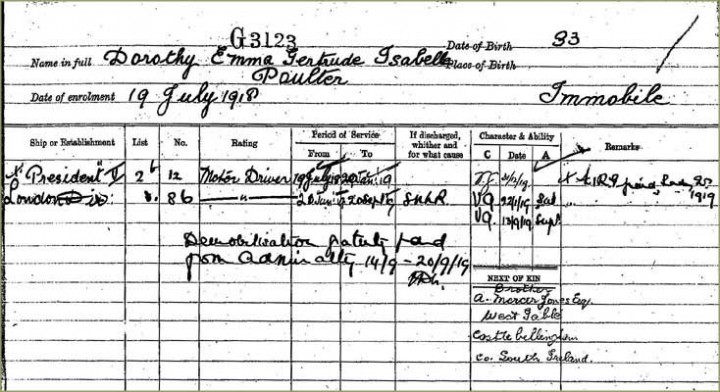 G3123
Name in full Dorothy Emma Gertrude Isabell Date of Birth 33
Poulter Place of Birth
Date of enrolment 19 July 1918 Immobile
Ship or Establishment List No. Rating Period of Service From To If discharged, whither and for what cause Character & Ability C Date A Remarks
"President" V 2 12 Motor Driver 19 July 18
London 86 20 Sept 19 SNLR VG Sat
VG 13/9/19 Supr
Demobilisation paid
from Admiralty 14/9 - 20/9/19
NEXT OF KIN
Brother
A. Mercer Jones Esq.
West Gable
Castle bellingham
Co. South Ireland.